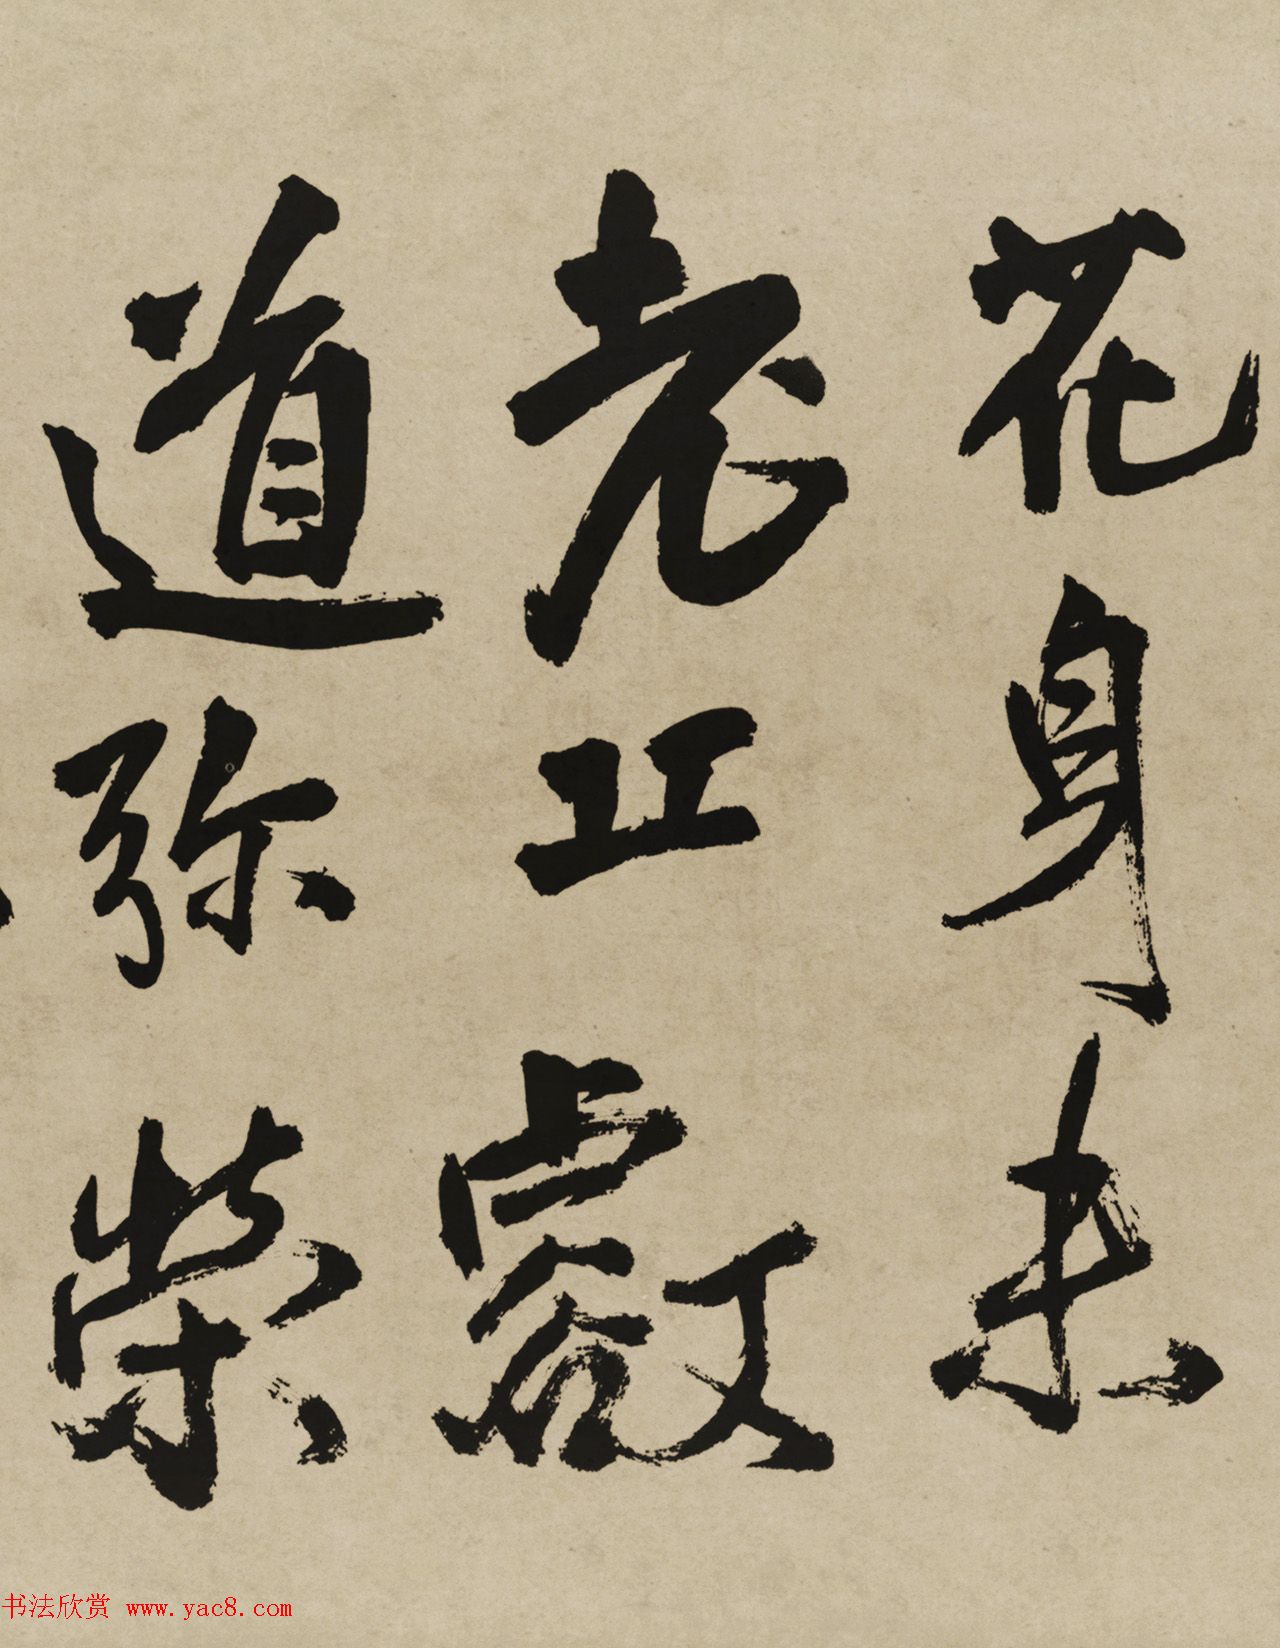 花身未
老丘壑
道弥榮
书法欣赏 www.yac8.com